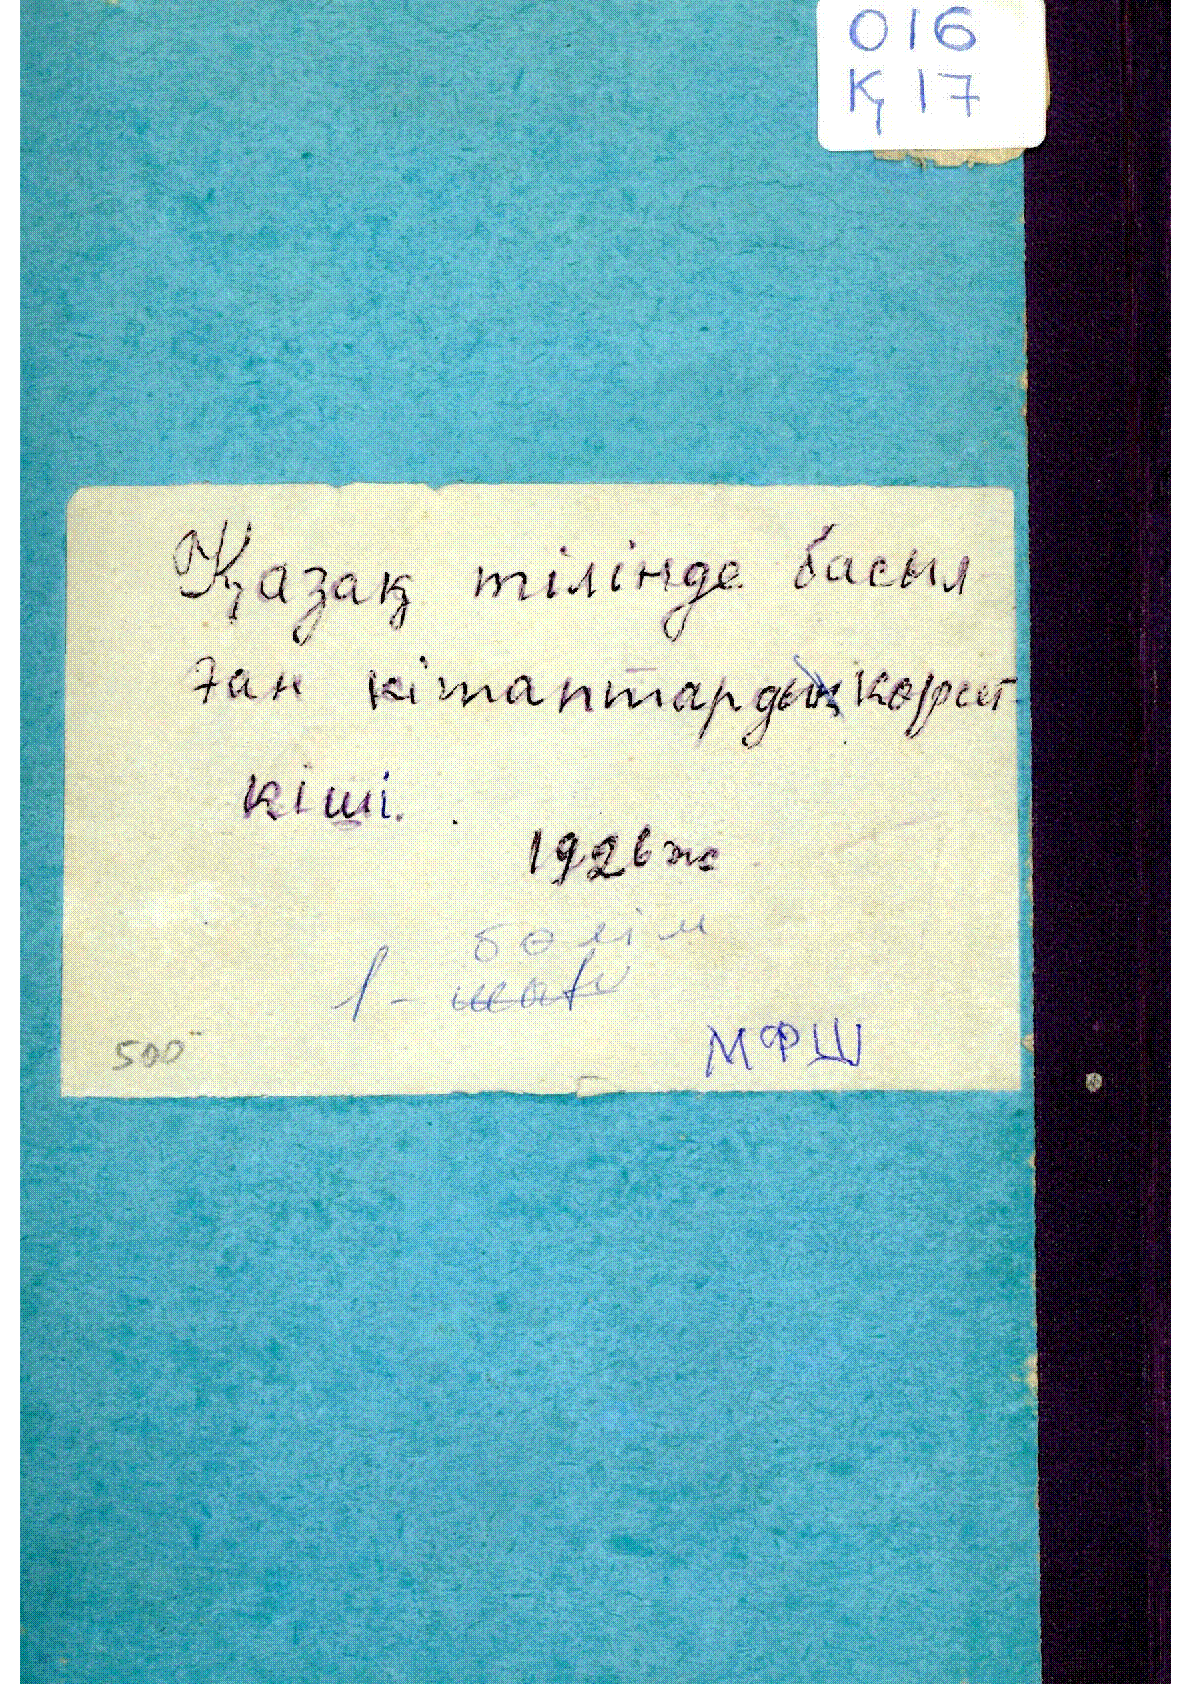 016
Қ 17
Қазақ тілінде басыл
ған кітаптардың көрсет-
кіші.
1926 ж
бөлім
1-
500
МФШ